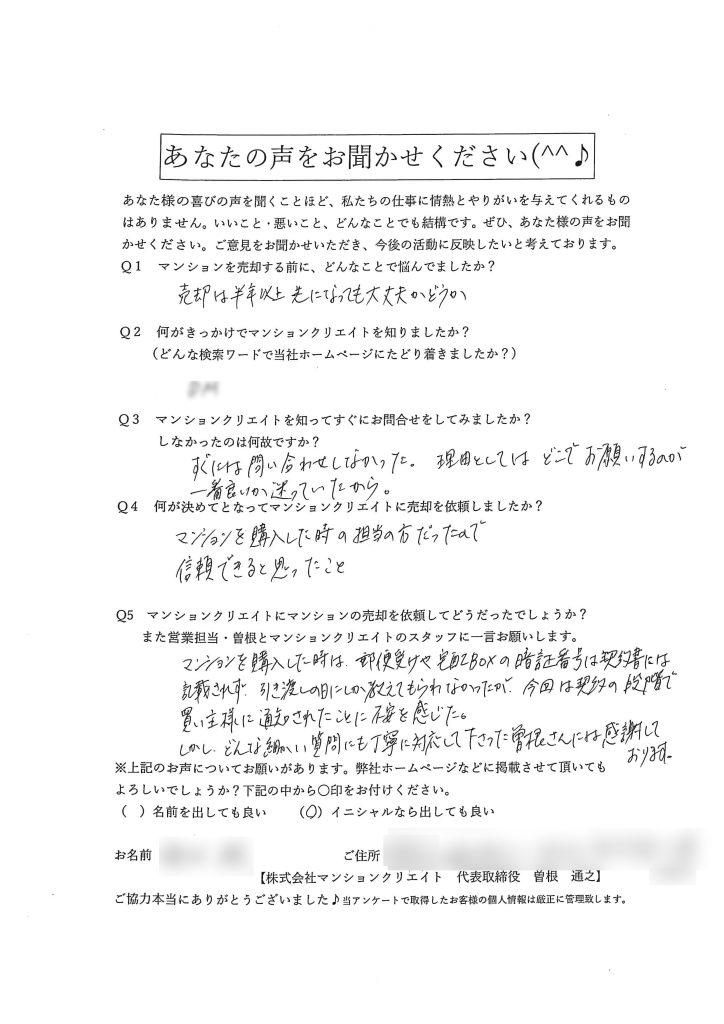 あなたの声をお聞かせください(^^♪
あなた様の喜びの声を聞くことほど、私たちの仕事に情熱とやりがいを与えてくれるもの
はありません。いいこと・悪いこと、どんなことでも結構です。ぜひ、あなた様の声をお聞
かせください。ご意見をお聞かせいただき、今後の活動に反映したいと考えております。
Q1　マンションを売却する前に、どんなことで悩んでましたか？
売却は半年以上先になっても大丈夫かどうか
Q2　何がきっかけでマンションクリエイトを知りましたか？
（どんな検索ワードで当社ホームページにたどり着きましたか？）
Q3　マンションクリエイトを知ってすぐにお問合せをしてみましたか？
しなかったのは何故ですか？
すぐには問い合わせしなかった。理由としてはどこでお願いするのが
一番良いか迷っていたから。
Q4　何が決めてとなってマンションクリエイトに売却を依頼しましたか？
マンションを購入した時の担当の方だったので
信頼できると思ったこと
Q5　マンションクリエイトにマンションの売却を依頼してどうだったでしょうか？
また営業担当・曽根とマンションクリエイトのスタッフに一言お願いします。
マンションを購入した時は、郵便受けや宅配BOXの暗証番号は契約書には
記載されず、引き渡しの日にしか教えてもらわなかったが、今回は契約の段階で
買い主様に通知されたことに不安を感じた。
しかし、どんな細かい質問にも丁寧に対応して下さった曽根さんには感謝して
おります。
※上記のお声についてお願いがあります。弊社ホームページなどに掲載させて頂いても
よろしいでしょうか？下記の中から○印をお付けください。
（　）名前を出しても良い　　（○）イニシャルなら出しても良い
お名前　ご住所
【株式会社マンションクリエイト　代表取締役　曽根　通之】
ご協力本当にありがとうございました♪当アンケートで取得したお客様の個人情報は厳正に管理致します。